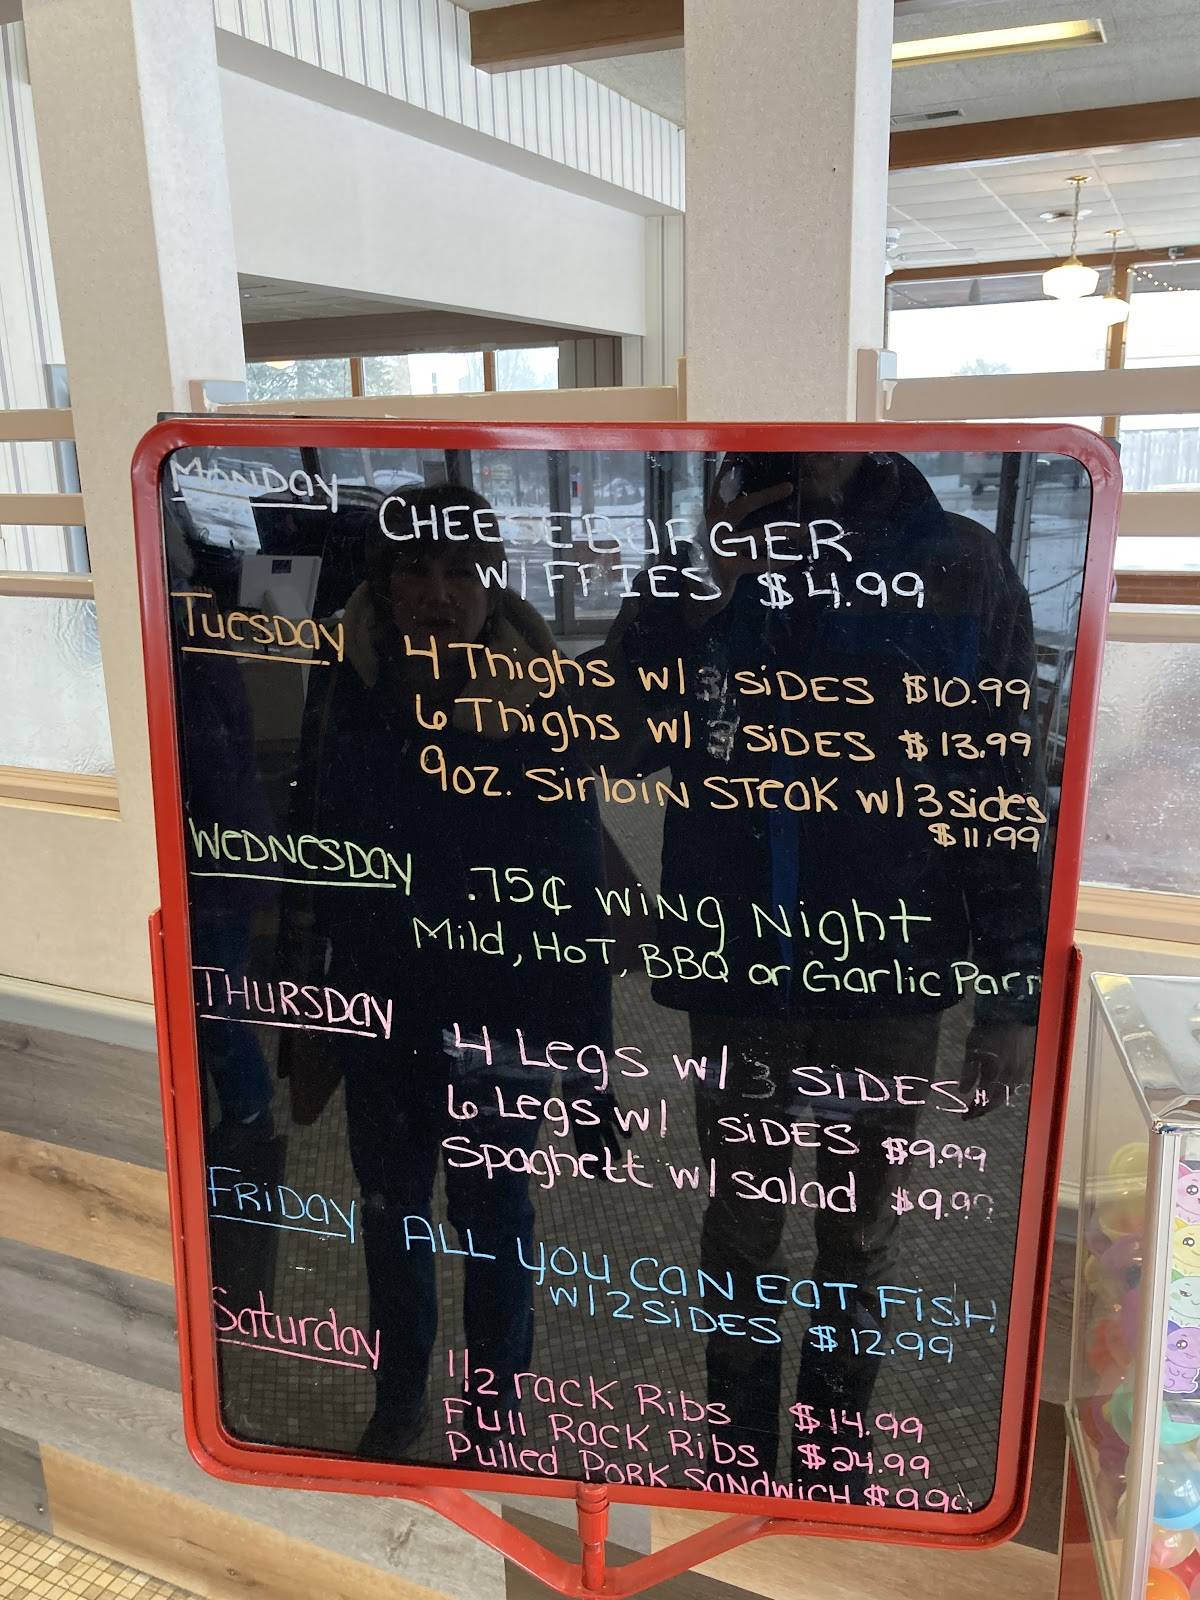 MONDAY
CHEESEBURGER
W/FRIES $4.99
TUESDAY
4 Thighs w/ 3 SIDES $10.99
6 Thighs w/ SIDES $13.99
9oz. Sirloin STEAK w/ 3 sides
$11.99
WEDNESDAY
.75¢ WING Night
Mild, HOT, BBQ or Garlic Parm
THURSDAY
4 Legs w/ 3 SIDES
6 Legs w/ SIDES $9.99
Spaghetti w/ Salad $9.99
FRIDAY
ALL YOU CAN EAT FISH
W/2 SIDES $12.99
Saturday
1/2 rack Ribs $14.99
Full Rack Ribs $24.99
Pulled PORK SANDWICH $9.99